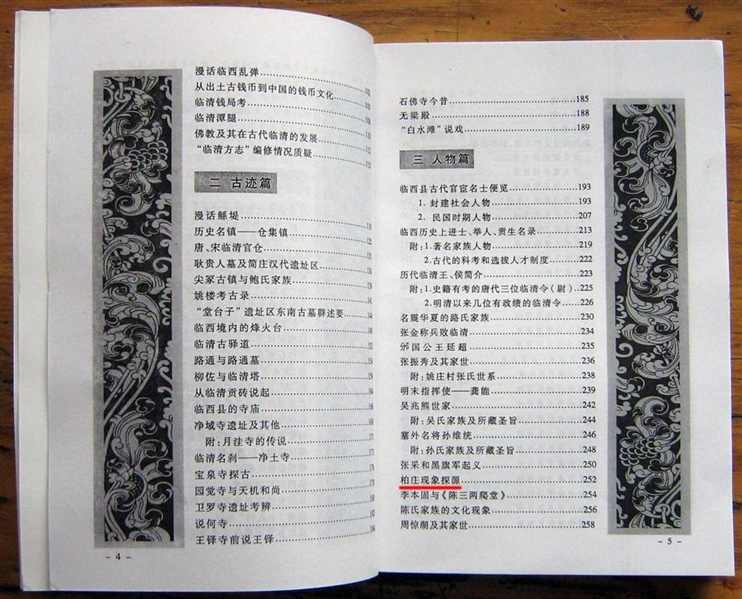 漫话临西乱弹
从出土古钱币到中国的钱币文化
临清钱局考
临清潭腿
佛教及其在古代临清的发展
“临清方志”编修情况质疑
二 古迹篇
漫话鲧堤
历史名镇——仓集镇
唐、宋临清官仓
耿贵人墓及简庄汉代遗址区
尖冢古镇与鲍氏家族
姚楼考古录
“堂台子”遗址区东南古墓群述要
临西境内的烽火台
临清古驿道
路通与路通墓
柳佐与临清塔
从临清贡砖说起
临西县的寺庙
净域寺遗址及其他
附:月洼寺的传说
临清名刹——净土寺
宝泉寺探古
园觉寺与天机和尚
卫罗寺遗址考辨
说何寺
王铎寺前说王铎
- 4 -
石佛寺今昔 185
无梁殿 188
“白水滩”说戏 189
三 人物篇
临西县古代官宦名士便览 193
1. 封建社会人物 193
2. 民国时期人物 207
临西历史上进士、举人、贡生名录 213
附:1.著名家族人物 219
2.古代的科考和选拔人才制度 222
历代临清王、侯简介 223
附:1.史籍有考的唐代三位临清令(尉) 225
2.明清以来几位有政绩的临清令 226
名震华夏的路氏家族 230
张金称兵败临清 234
邠国公王延超 235
张振秀及其家世 236
附:姚庄村张氏世系 238
明末指挥使——龚能 239
吴兆熊世家 242
附:吴氏家族及所藏圣旨 244
塞外名将孙维统 246
附:孙氏家族及所藏圣旨 248
张采和黑旗军起义 250
柏庄现象探源 252
李本固与《陈三两爬堂》 254
陈氏家族的文化现象 256
周惊潮及其家世 258
- 5 -